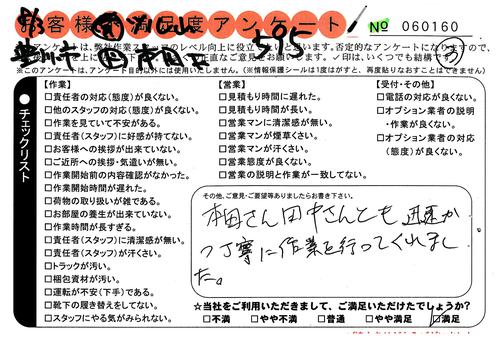 お客様満足度アンケート!
No 060160
595
※このアンケートは、アンケート目的以外には使用いたしません。(※情報保護シールは1度がすと、再度貼りなおすことはできません)
チェックリスト
【作業】
□責任者の対応(態度)が良くない。
□他のスタッフの対応(態度)が良くない。
□作業を見ていて不安がある。
□責任者(スタッフ)に好感が持てない。
□お客様への挨拶が出来ていない。
□ご近所への挨拶・気遣いが無い。
□作業開始前の内容確認がなかった。
□作業開始時間が遅れた。
□荷物の取り扱いが雑である。
□お部屋の養生が出来ていない。
□作業時間が長すぎる。
□責任者(スタッフ)に清潔感が無い。
□責任者(スタッフ)が汗くさい。
□トラックが汚い。
□梱包資材が汚い。
□運転が不安(下手)である。
□靴下の履き替えをしてない。
□スタッフにやる気がみられない。
【営業】
□見積もり時間に遅れた。
□見積もり時間が長い。
□営業マンに清潔感が無い。
□営業マンが煙草くさい。
□営業マンが汗くさい。
□営業態度が良くない。
□営業の説明と作業が一致してない。
【受付・その他】
□電話の対応が良くない。
□オプション業者の説明
・作業が良くない。
□オプション業者の対応
(態度)が良くない。
その他、ご意見・ご要望等ありましたらお書き下さい。
本田さん田中さんとも迅速か
つ丁寧に作業を行ってくれまし
た。
☆当社をご利用いただきまして、ご満足いただけたでしょうか?
□不満 □やや不満 □普通 □やや満足 □満足